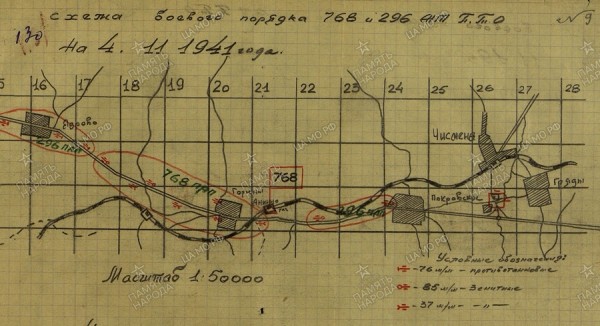 схема боевого порядка 768 и 296 АП П.Т.О
№ 9
130
На 4. 11 1941 года.
16 17 18 19 20 21 22 23 24 25 26 27 28
Чисмена
296 ПАП
768 ПАП
Горюны
768
296 ПАП
Покровское
Гряды
Масштаб 1:50000
Условные обозначения:
- 76 м/м - противотанковые
- 85 м/м - зенитные
- 37 м/м - -"-
ПАМЯТЬ НАРОДА
ЦАМО.РФ